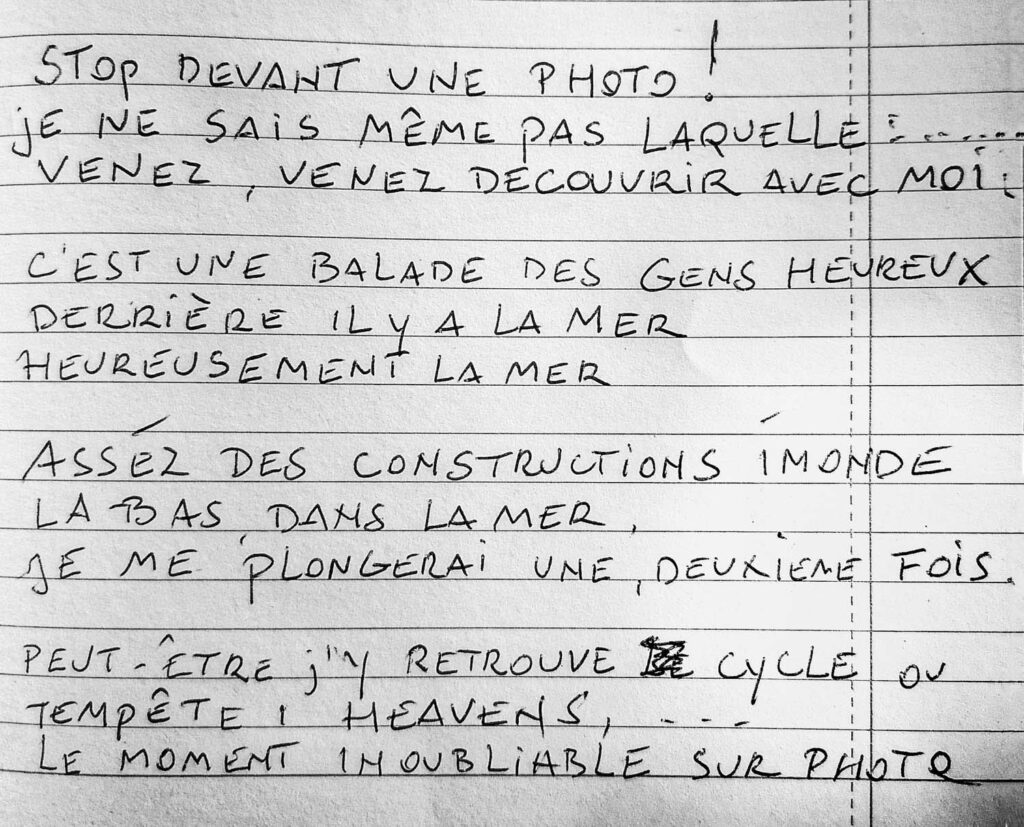 STOP DEVANT UNE PHOTO!
jE NE SAiS MÊME PAS LAQUELLE : ........
VENEZ, VENEZ DECOUVRiR AVEC MOi :
C'EST UNE BALADE DES GENS HEUREUX
DERRIÈRE IL Y A LA MER
HEUREUSEMENT LA MER
ASSÉZ DES CONSTRUCTiONS ÍMONDE
LA BAS DANS LA MER,
JE ME PLONGERAi UNE, DEUXIEME FOiS.
PEUT-ÊTRE j"Y RETROUVE CYCLE OU
TEMPÊTE, HEAVENS, ---
LE MOMENT INOUBLiABLE SUR PHOTO